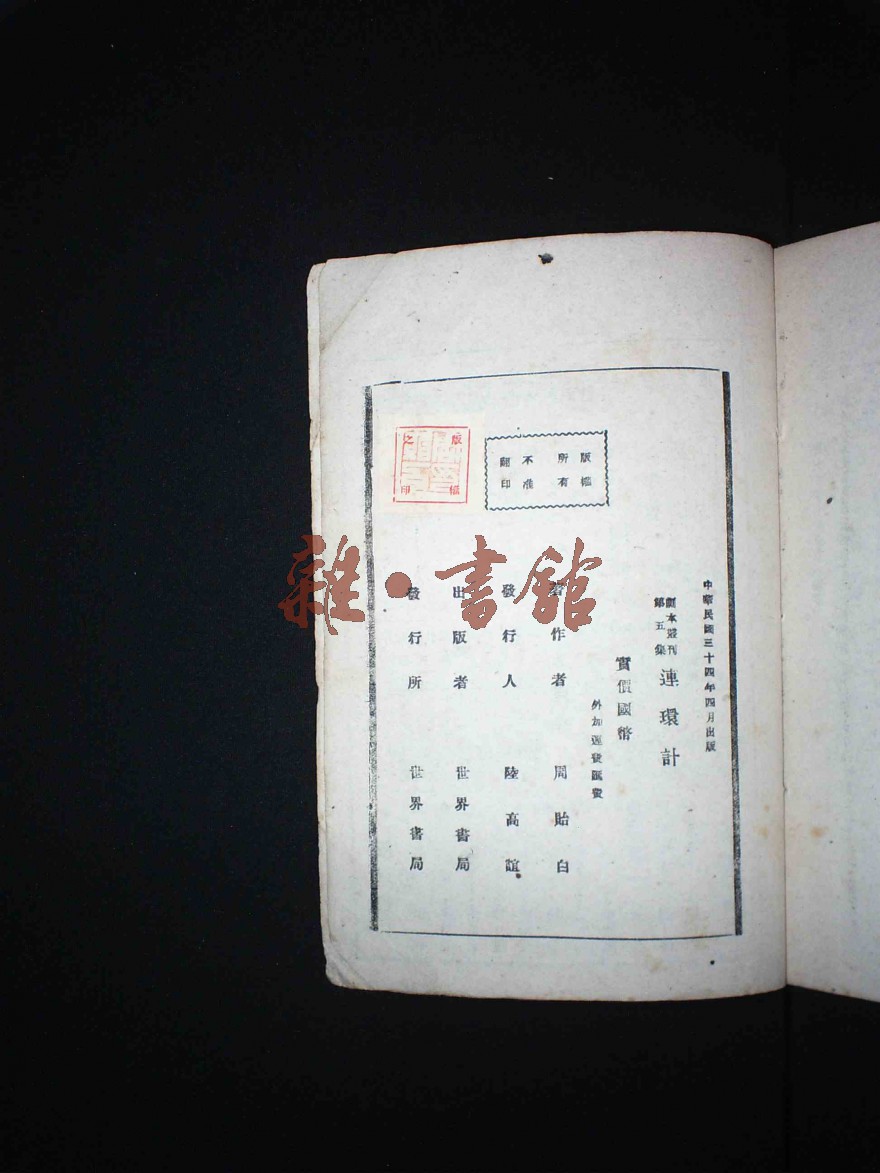 中華民國三十四年四月出版
劇本叢刊
第五集
連環計
實價國幣
外加運費匯費
著作者 周貽白
發行人 陸高誼
出版者 世界書局
發行所 世界書局
版權
所有
不准
翻印
版權
之印
雜·書館